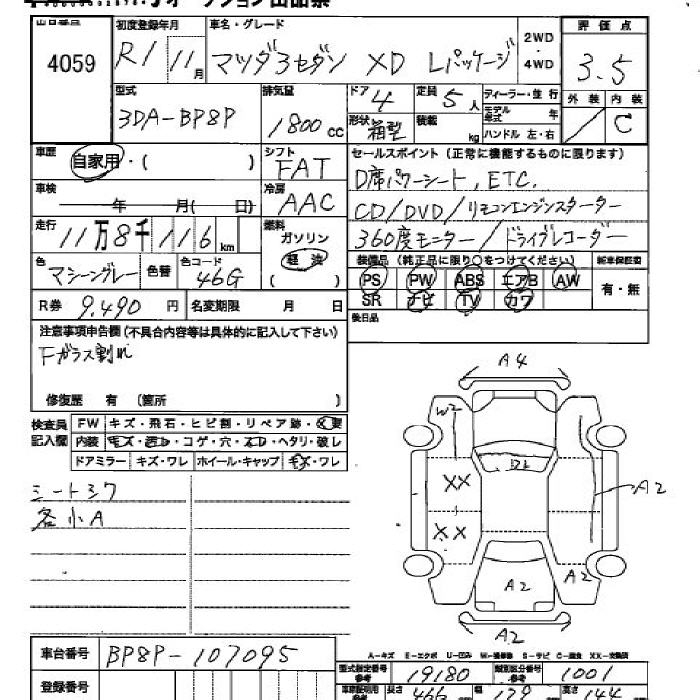 オークション出品票
出品番号 4059
初度登録年月 R1/11月
車名・グレード マツダ3セダン XD Lパッケージ 2WD・4WD
評価点 3.5
外装 内装 C
型式 3DA-BP8P
排気量 1800cc
ドア 4 形状 箱型
定員 5人 積載 kg
ディーラー・並行
モデル年式 年
ハンドル 左・右
車歴 自家用・( )
シフト FAT
車検 年 月( 日)
冷房 AAC
走行 11万8千116km
燃料 ガソリン 軽油 ( )
色 マシーングレー 色替 色コード 46G
セールスポイント(正常に機能するものに限ります)
D席パワーシート, ETC.
CD/DVD/リモコンエンジンスターター
360度モニター/ドライブレコーダー
装備品(純正品に限り○をつけてください) 新車保証書
PS PW ABS エアB AW 有・無
SR ナビ TV カワ
後日品
R券 9,490円 名変期限 月 日
注意事項申告欄(不具合内容等は具体的に記入して下さい)
Fガラス割れ
修復歴 有 (箇所 )
検査員記入欄 FW キズ・飛石・ヒビ割・リペア跡・交要
内装 コゲ・穴・ヘタリ・破レ
ドアミラー キズ・ワレ ホイール・キャップ キズ・ワレ
シートシワ
各小A
A4
W2
XX
A2
XX
A2
A2
A2
A-キズ E-エクボ U-凹み W-補修跡 S-サビ C-腐食 XX-交換済
車台番号 BP8P-107095
型式指定番号 参考 19180 類別区分番号 参考 1001
登録番号
車庫証明用 参考 長さ 466 幅 179 高さ 144